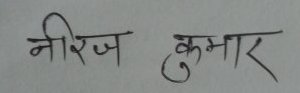 नीरिज कुमार